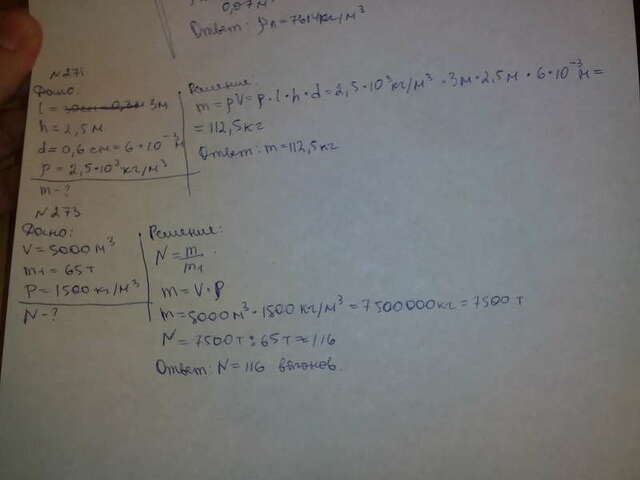 0,07м
Ответ: ρл=7614кг/м³
N271
Дано
l = 3м
h = 2,5м
d = 0,6см = 6·10⁻³м
ρ = 2,5·10³кг/м³
m-?
Решение:
m = ρV = ρ·l·h·d = 2,5·10³кг/м³·3м·2,5м·6·10⁻³м =
= 112,5кг
Ответ: m = 112,5кг
N273
Дано:
V = 5000м³
m₁ = 65т
ρ = 1500кг/м³
N-?
Решение:
N = m/m₁
m = V·ρ
m = 5000м³·1500кг/м³ = 7500000кг = 7500т
N = 7500т : 65т ≈ 116
Ответ: N = 116 вагонов.